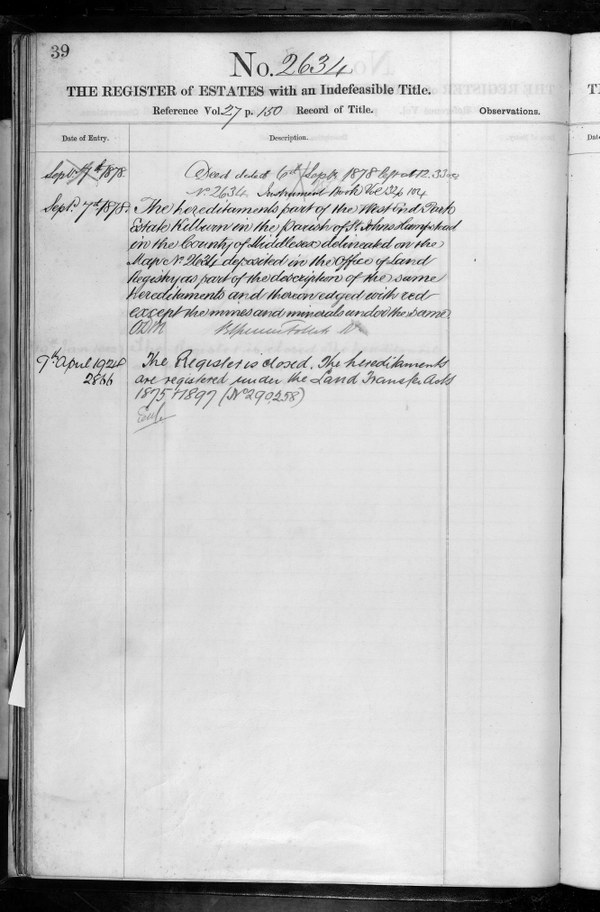 39
No. 2634
THE REGISTER of ESTATES with an Indefeasible Title.
Reference Vol. 27 p. 150 Record of Title.
Observations.
Date of Entry.
Description.
Septr. 7th 1878
Deed dated 6th Septr 1878 left at 12.33
No 2634 Instrument Book Vol
Septr. 7th 1878.
The hereditaments part of the West End Park
Estate Kilburn in the Parish of St Johns Hampstead
in the County of Middlesex delineated on the
Map No 2634 deposited in the Office of Land
Registry as part of the description of the same
hereditaments and thereon edged with red
except the mines and minerals under the same
9th April 1924
2866
The Register is closed. The hereditaments
are registered under the Land Transfer Acts
1875 & 1897 (No 290258)